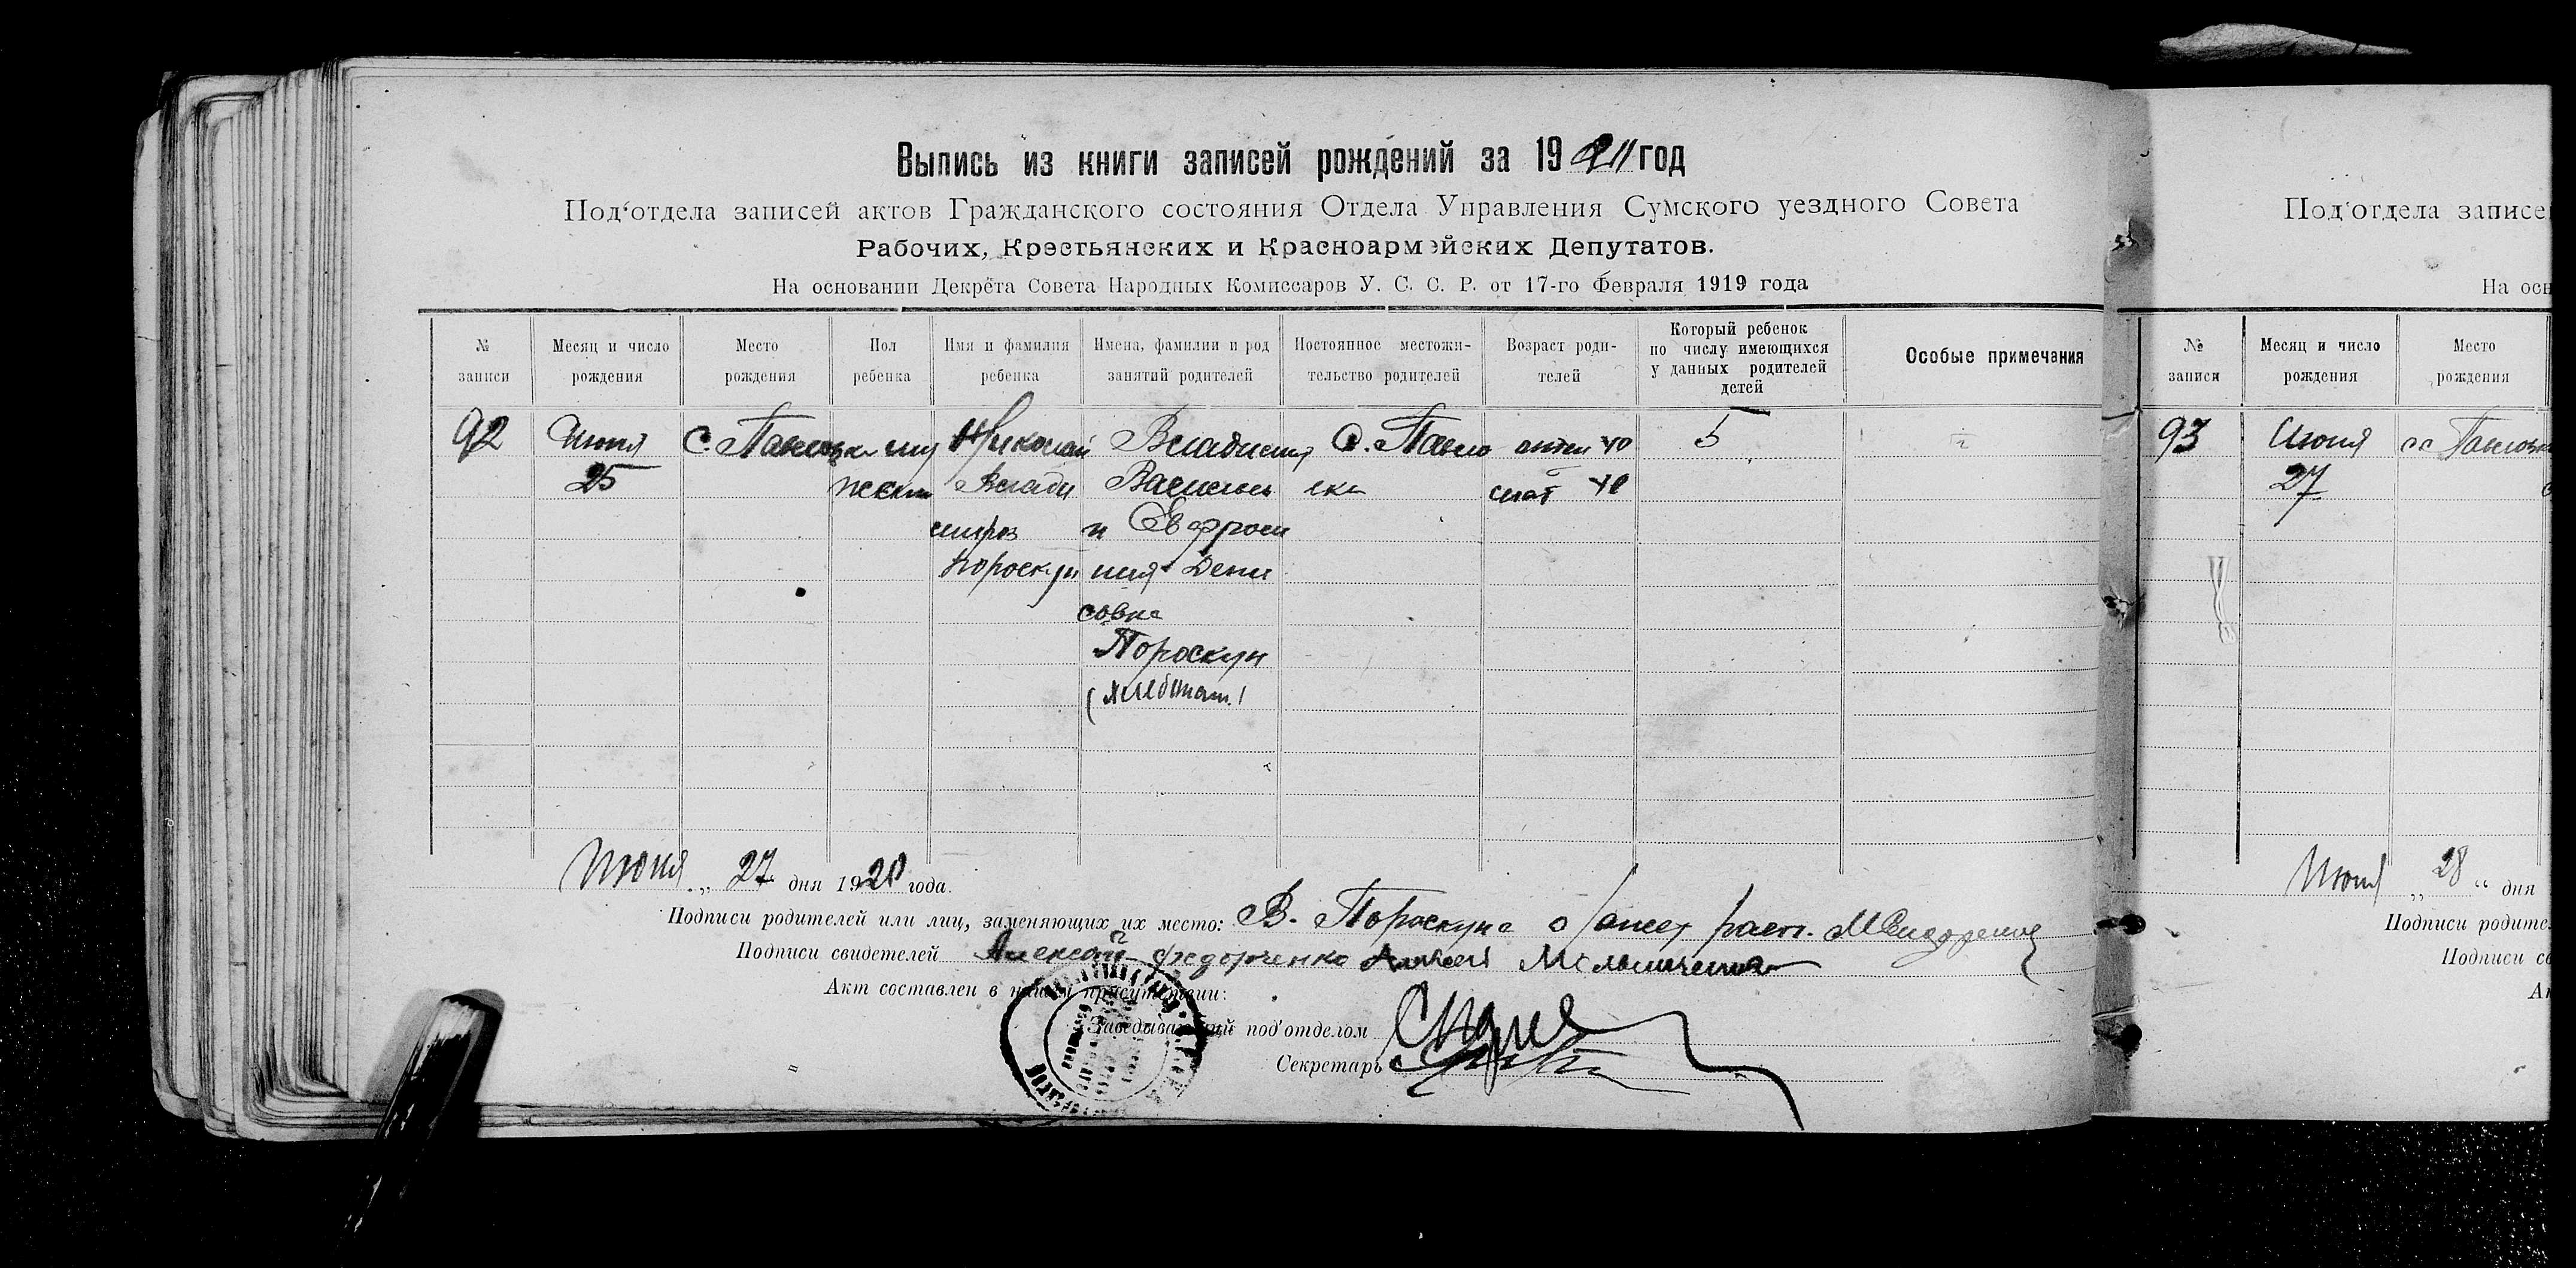 Выпись из книги записей рождений за 19 год
Под'отдела записей актов Гражданского состояния Отдела Управления Сумского уездного Совета
Рабочих, Крестьянских и Красноармейских Депутатов.
На основании Декрета Совета Народных Комиссаров У. С. С. Р. от 17-го Февраля 1919 года
№ записи
Месяц и число рождения
Место рождения
Пол ребенка
Имя и фамилия ребенка
Имена, фамилии и род занятий родителей
Постоянное местожительство родителей
Возраст родителей
Который ребенок по числу имеющихся у данных родителей детей
Особые примечания
92
Июня
25
С.
Николай
Влади
миров
Пороскун
Владимир
Васильев
и Евфроси
ния Дени
совна
Пороскун
С.
отец 40
мат 40
5
Июня „ 27 дня 1920 года.
Подписи родителей или лиц, заменяющих их место: В. Пороскуна
Подписи свидетелей Алексей Федорченко
Акт составлен в нашем присутствии:
Заведывающий под'отделом
Секретарь
Под'отдела записе
На осн
№ записи
Месяц и число рождения
Место рождения
93
Июня
27
Июня „ 28 “ дня
Подписи родите
Подписи св
Ак